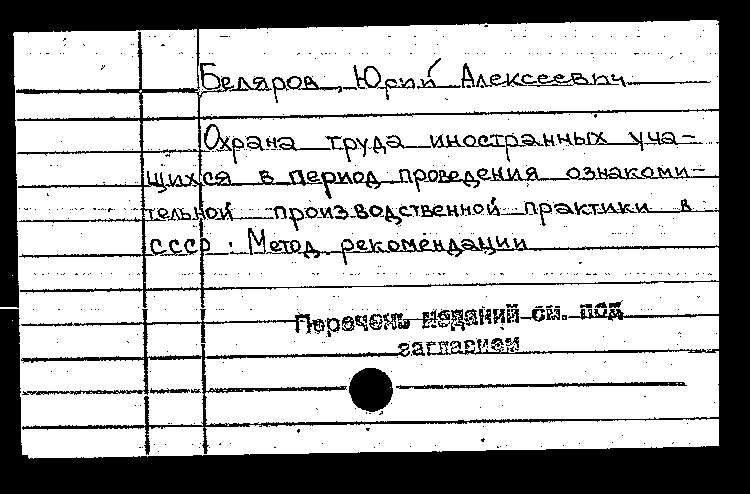 Беляров, Юрий Алексеевич
Охрана труда иностранных уча-
щихся в период проведения ознакоми-
тельной производственной практики в
СССР. Метод. рекомендации
Перечень изданий см. под
заглавием